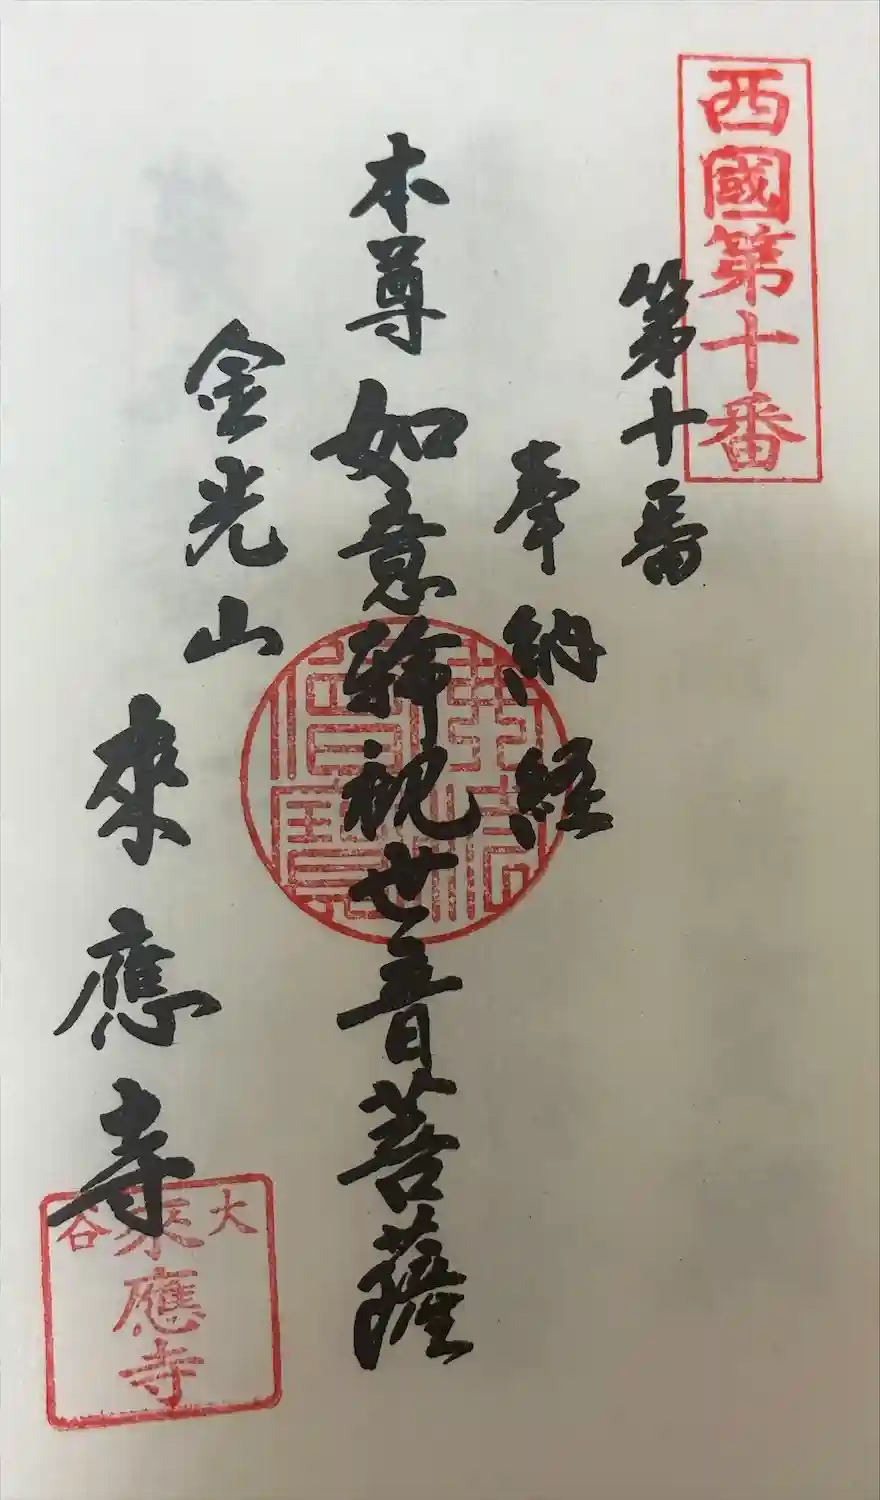 西國第十番
第十番
奉納経
本尊 如意輪観世音菩薩
金光山
來應寺
大谷
來應寺